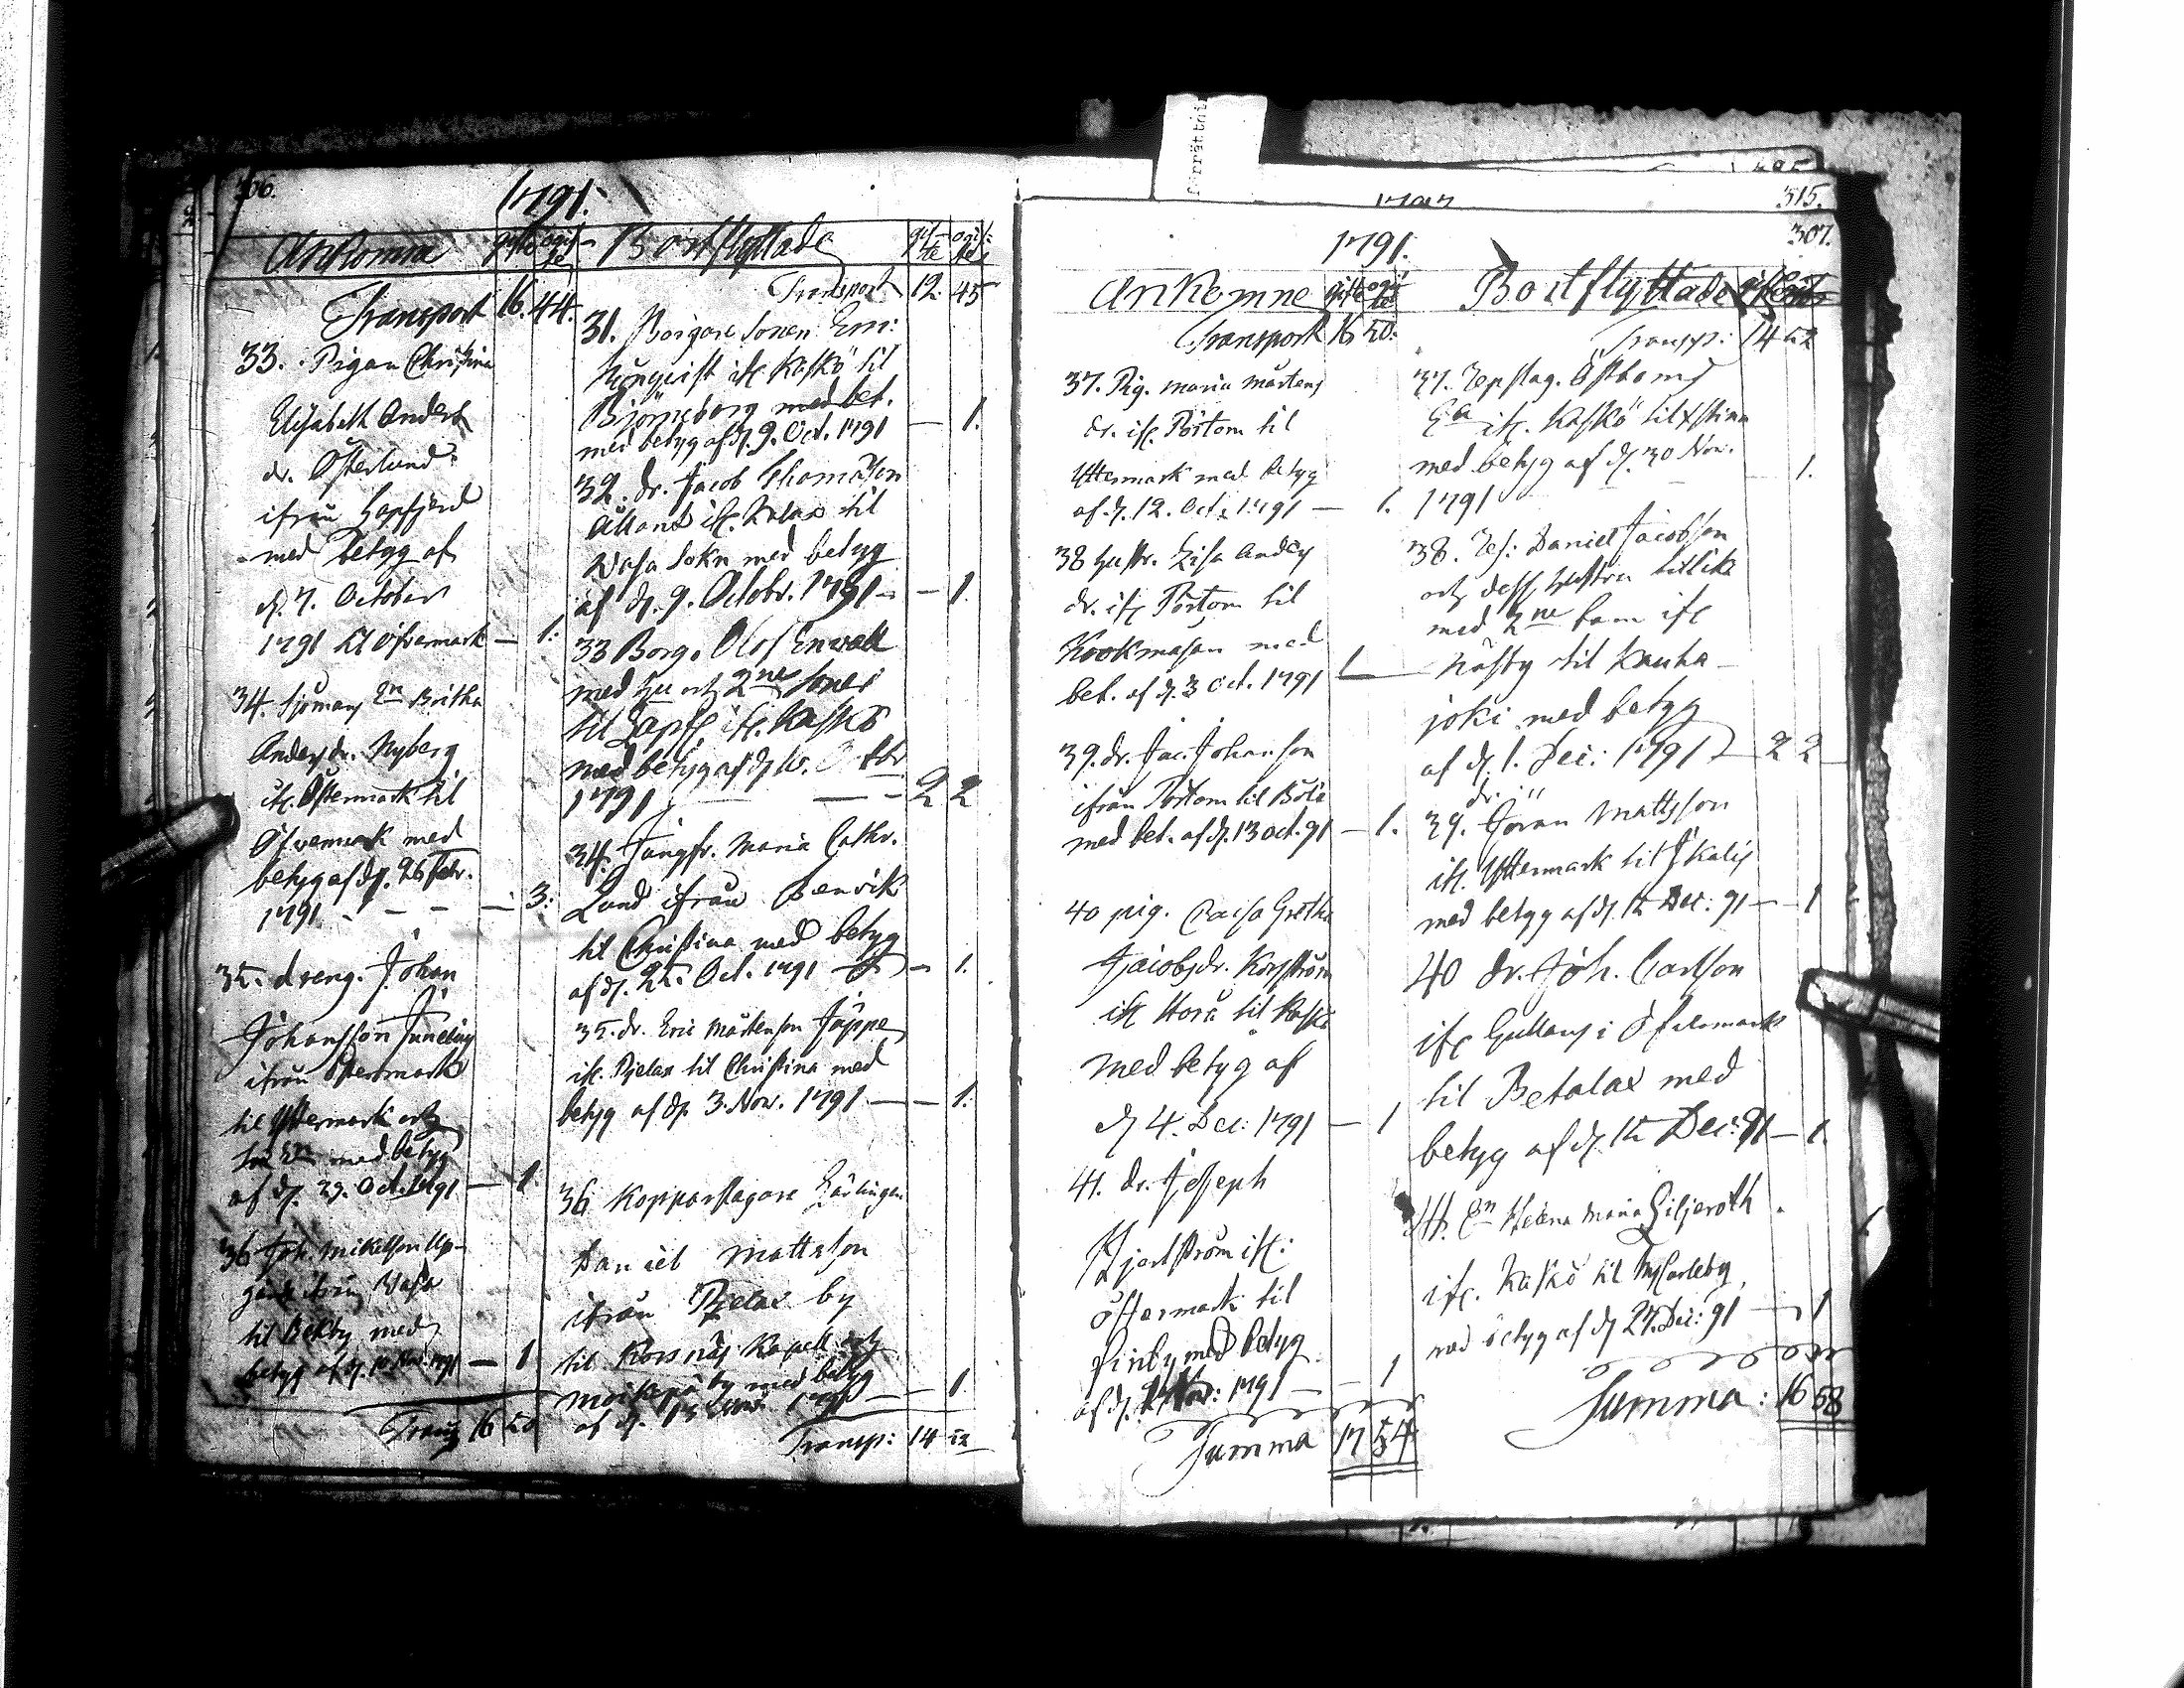 306.
1791.
Ankomna gifte ogif-te
Transport 16. 44.
33. Pigan Christina
Elisabeth Anders
dr. Österlund
ifrån
med betyg af
d. 7. October
1791 til Öfvermark — 1.
34. Sjömans Britha
Anders dr. Nyberg
ifr. Östermark til
Öfvermark med
betyg af d. 26 Febr.
1791. — — — 3:
35. dreng. Johan
Johansson
ifrån Östermark
til Yttermark och
med betyg
af d. 29. Oct. 1791 — 1.
36 Joh. Mikelsson Up-
ifrån Wasa
til med
betyg af d. 10 Nov. 1791 — 1
Transp 16 50
Bortflyttade gif-te ogif-te
Transport 12. 45
31. Borgare Sonen Em:
ifr. Kaskö til
Björneborg med bet.
med betyg af d. 9. Oct. 1791 — 1.
32. dr. Jacob Thomasson
ifr. til
Wasa Sokn med betyg
af d. 9. Octobr. 1791 — 1.
33 Borg. Olof Enwald
med hu och 2ne Söner
til Lapfj. ifr. Kaskö
med betyg af d. 10. Octbr
1791 — — 2 2
34. Jungfr. Maria Cathr.
Lund ifrån Benvik
til Christina med betyg
af d. 25. Oct. 1791 — 1.
35. dr. Eric Mårtenson Jåppe
ifr. Pjelax til Christina med
betyg af d. 3. Nov. 1791 — — 1.
36 Kopparslagare Lärlingen
Daniel Mattsson
ifrån Pjelax by
til Korsnäs Kapell och
by med betyg
af d. 1791 — — 1.
Transp: 14 52
315.
307.
1791.
Ankomne gifte ogifte
Transport 16 50.
37. Pig. Maria Mårtens
dr. ifr. Pörtom til
Yttermark med betyg
af d. 12. Oct. 1791 — 1.
38 hustr. Lisa Anders
dr. ifr. Pörtom til
med
bet. af d. 3 oct. 1791 1 —
39. dr. Jac. Johanson
ifrån Pörtom til Böle
med bet. af d. 13 oct. 91 — 1.
40 pig. Caisa Gretha
Jacobsdr.
ifr til Kaskö
med betyg af
d 4. Dec: 1791 — 1
41. dr. Joseph
Hjertström ifr:
Östermark til
Finby med betyg
af d. 1791 — — 1
Summa 17 54
Bortflyttade gifte ogifte
Transp: 14 52
37. Östboms
ifr. Kaskö til Xstina
med betyg af d. 30 Nov.
1791 — — 1.
38. Daniel Jacobsson
och dess hustru tillika
med 2ne barn ifr
Näsby til Kauha-
joki med betyg
af d. 1. Dec: 1791 — 2 2
dr.
39. Göran Mattsson
ifr. Yttermark til
med betyg af d. 12 Dec: 91 — 1
40 dr. Joh. Carlson
ifr i Öfvermark
til Petalax med
betyg af d 12 Dec: 91 — 1.
41. Helena Maria Liljeroth
ifr. Kaskö til NyCarleby
med betyg af d 27. Dec: 91 — 1
Summa: 16 58